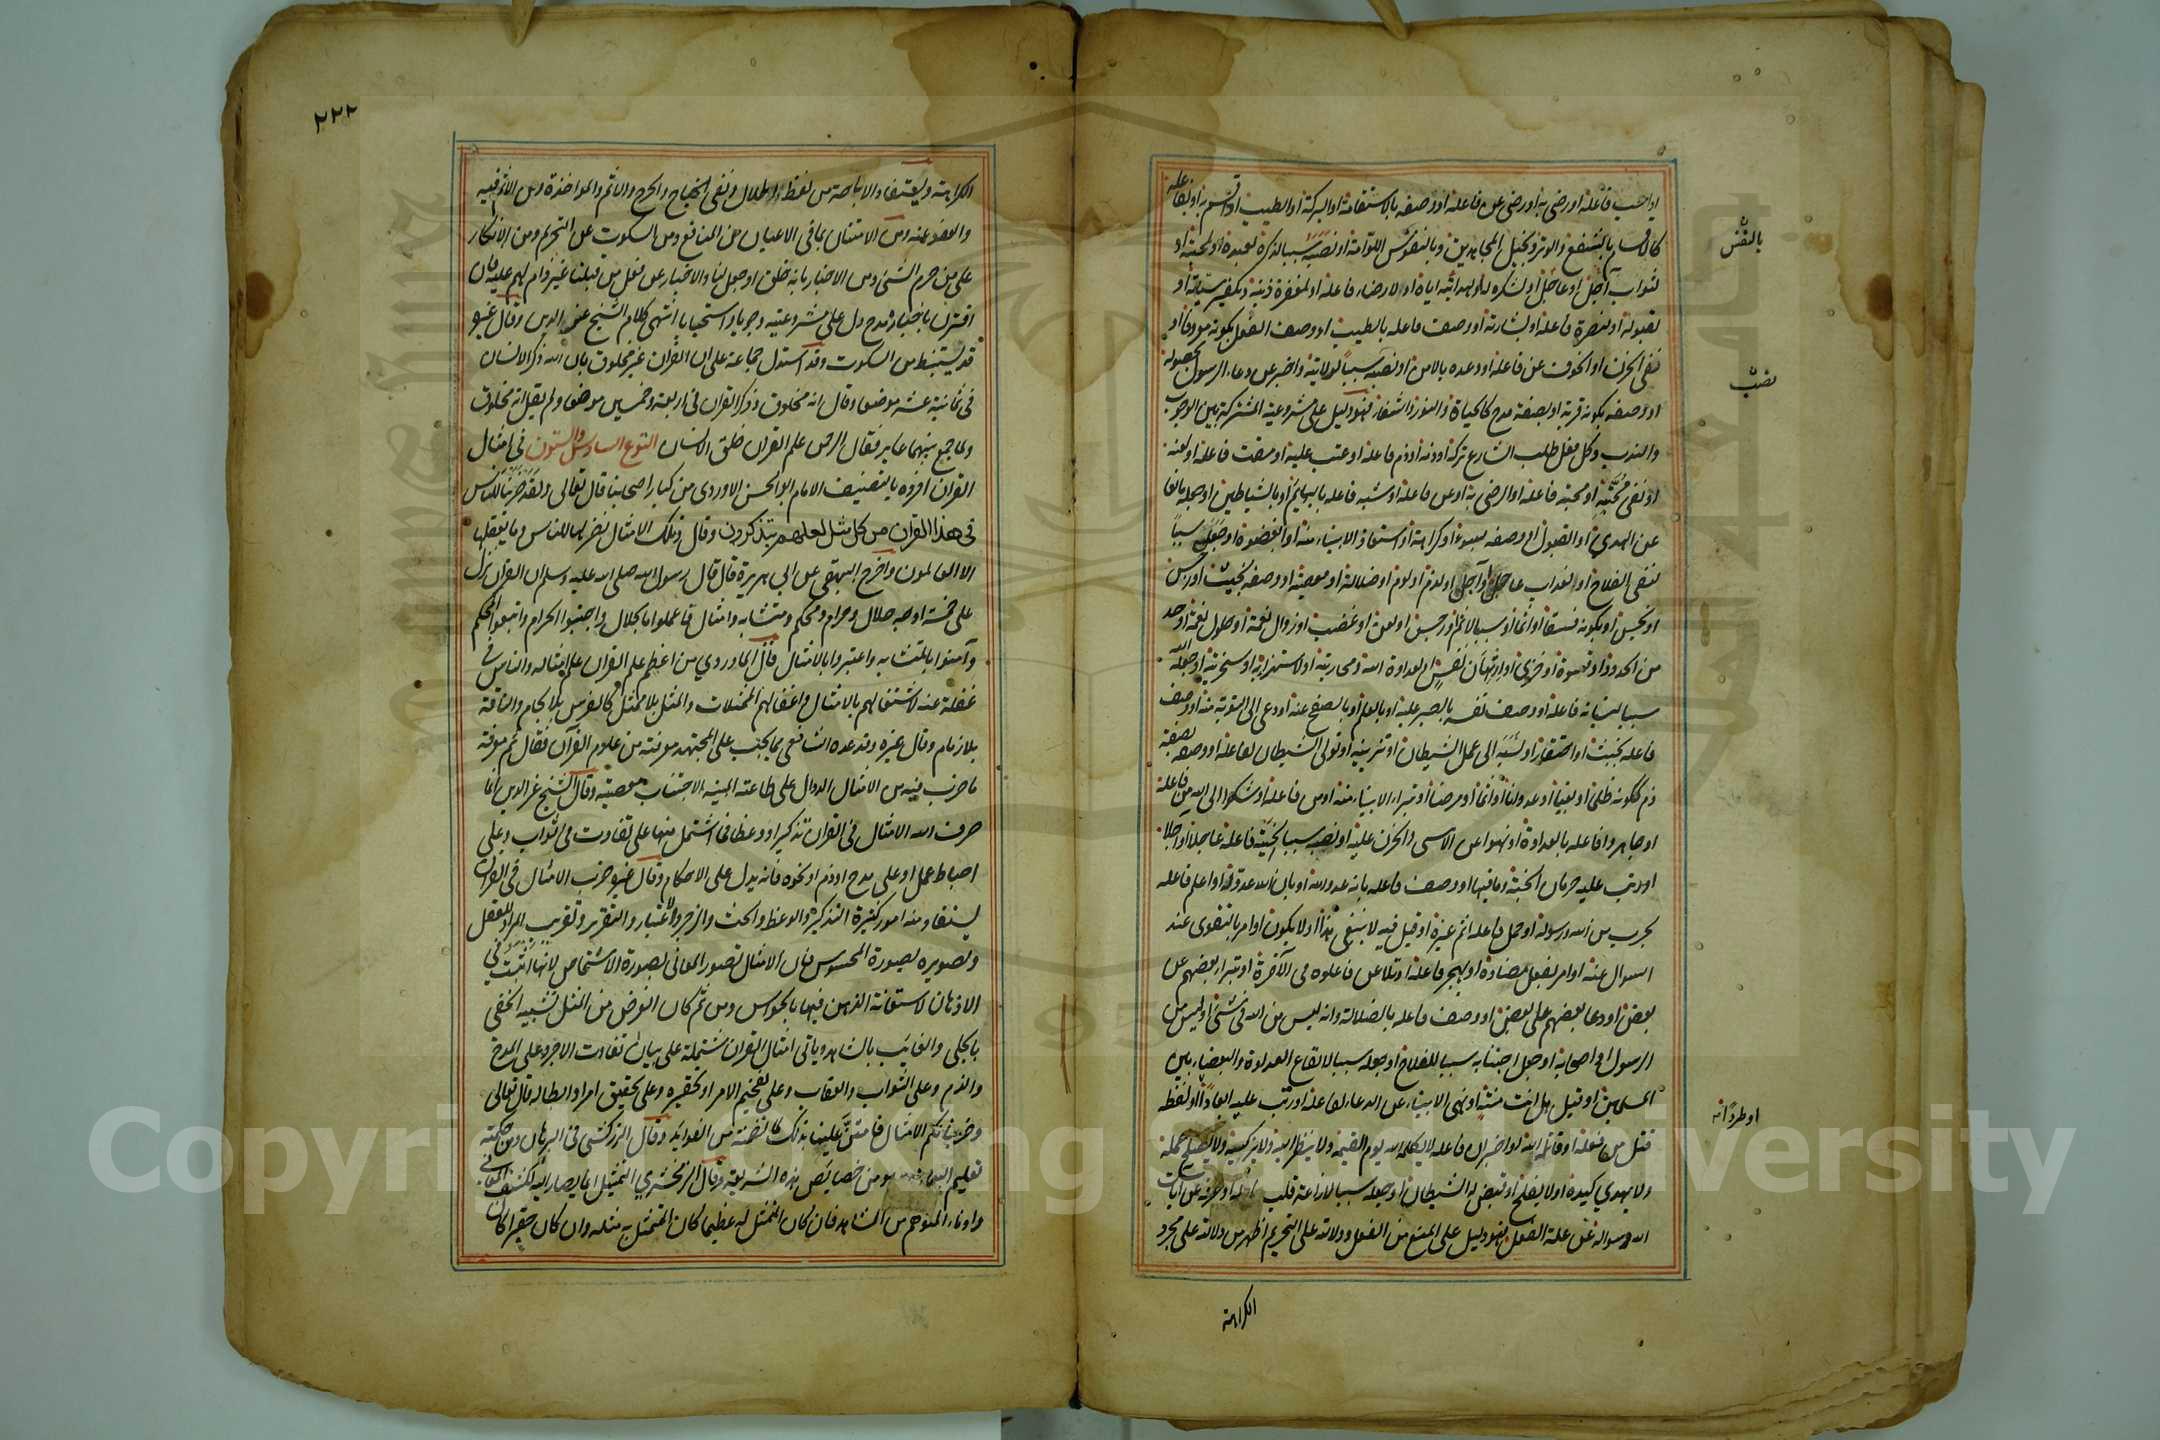 او احب فاعله او رضي به او رضي عن فاعله او وصفه بالاستقامة او البركة او الطيب او اقسم به او بفاعله
كالاقسام بالشفع والوتر وبخيل المجاهدين وبالنفس اللوامة او نصبه سببا لذكره لعبده او لمحبته او
لثواب آجل او عاجل او لشكره له او لهدايته اياه او لارضاء فاعله او لمغفرة ذنبه وتكفير سيئاته او
لقبوله او لنصرة فاعله او بشارته او وصف فاعله بالطيب او وصف الفعل بكونه معروفا او
نفى الحزن او الخوف عن فاعله او وعده بالامن او نصبه سببا لولايته واخبر عن دعاء الرسول بحصوله
او وصفه بكونه قربة او بصفة مدح كالحياة والنور والشفاء فهو دليل على مشروعيته المشتركة بين الوجوب
والندب وكل فعل طلب الشارع تركه او ذمه او ذم فاعله او عتب عليه او مقت فاعله او لعنه
او نفى محبته او محبة فاعله او الرضى به او عن فاعله او شبه فاعله بالبهائم او بالشياطين او جعله مانعا
عن الهدى او القبول او وصفه بسوء او كراهة او استعاذ الانبياء منه او ابغضوه او جعل سببا
لنفى الفلاح او لعذاب عاجل او آجل او لذم او لوم او ضلالة او معصية او وصفه بخبث او رجس
او نجس او بكونه فسقا او اثما او سببا لاثم او رجس او لعن او غضب او زوال نعمة او حلول نقمة او حد
من الحدود او قسوة او خزى او ارتهان نفس او لعداوة الله ومحاربته او لاستهزائه او سخريته او جعله الله
سببا لنسيانه فاعله او وصف نفسه بالصبر عليه او بالحلم او بالصفح عنه او دعى الى التوبة منه او وصف
فاعله بخبث او احتقار او نسبه الى عمل الشيطان او تزيينه او تولى الشيطان لفاعله او وصفه بصفة
ذم ككونه ظلما او بغيا او عدوانا او اثما او مرضا او تبرأ الانبياء منه او من فاعله او شكوا الى الله من فاعله
او جاهروا فاعله بالعداوة او نهوا عن الاسى والحزن عليه او نصب سببا لخيبة فاعله عاجلا او آجلا
او رتب عليه حرمان الجنة وما فيها او وصف فاعله بانه عدو لله او بان الله عدوه او اعلم فاعله
بحرب من الله ورسوله او حمل فاعله اثم غيره او قيل فيه لا ينبغى هذا او لا يكون او امر بالتقوى عند
السوال عنه او امر بفعل مضاده او بهجر فاعله او تلاعن فاعلوه فى الآخرة او تبرأ بعضهم من
بعض او دعا بعضهم على بعض او وصف فاعله بالضلالة وانه ليس من الله فى شئ او ليس من
الرسول او اصحابه او جعل اجتنابه سببا للفلاح او جعله سببا لايقاع العداوة والبغضاء بين
المسلمين او قيل هل انت منته او نهى الانبياء عن الدعاء لفاعله او رتب عليه ابعادا او لفظه
قتل من فعله او قاتله الله او اخبر ان فاعله لا يكلمه الله يوم القيمة ولا ينظر اليه ولا يزكيه ولا يصلح عمله
ولا يهدي كيده او لا يفلح او قيض له الشيطان او جعله سببا لازاغة قلب فاعله او صرفه عن آيات
الله وسواله عن علة الفعل فهو دليل على المنع من الفعل ودلالته على التحريم اظهر من دلالته على مجرد
الكراهة
بالنفس
نصب
او طردا انه
٢٢٢
الكراهة ويستفاد الاباحة من لفظ الاحلال ونفى الجناح والحرج والاثم والمواخذة ومن الاذن فيه
والعفو عنه ومن الامتنان بما فى الاعيان من المنافع ومن السكوت عن التحريم ومن الانكار
على من حرم الشئ ومن الاخبار بانه خلق او جعل لنا والاخبار عن فعل من قبلنا غير ذام لهم عليه فان
اقترن باخباره مدح دل على مشروعيته وجوبا او استحبابا انتهى كلام الشيخ عز الدين وقال غيره
قد يستنبط من السكوت وقد استدل جماعة على ان القرآن غير مخلوق بان الله ذكر الانسان
فى ثمانية عشر موضعا وقال انه مخلوق وذكر القرآن فى اربعة وخمسين موضعا ولم يقل انه مخلوق
ولما جمع بينهما غاير فقال الرحمن علم القران خلق الانسان النوع السادس والستون فى امثال
القرآن افرده بالتصنيف الامام ابو الحسن الماوردى من كبار اصحابنا قال تعالى ولقد ضربنا للناس
فى هذا القرآن من كل مثل لعلهم يتذكرون وقال وتلك الامثال نضربها للناس وما يعقلها
الا العالمون واخرج البيهقى عن ابى هريرة قال قال رسول الله صلى الله عليه وسلم ان القرآن نزل
على خمسة اوجه حلال وحرام ومحكم ومتشابه وامثال فاعملوا بالحلال واجتنبوا الحرام واتبعوا المحكم
وآمنوا بالمتشابه واعتبروا بالامثال قال الماوردي من اعظم علم القرآن علم امثاله والناس فى
غفلة عنه لاشتغالهم بالامثال واغفالهم الممثلات والمثل بلا ممثل كالفرس بلا لجام والناقة
بلا زمام وقال غيره وقد عده الشافعى مما يجب على المجتهد معرفته من علوم القرآن فقال ثم معرفة
ما ضرب فيه من الامثال الدوال على طاعته المبينة لاجتناب معصيته وقال الشيخ عز الدين انما
ضرب الله الامثال فى القرآن تذكيرا ووعظا فما اشتمل منها على تفاوت فى ثواب وعلى
احباط عمل او على مدح او ذم او نحوه فانه يدل على الاحكام وقال غيره ضرب الامثال فى القرآن
يستفاد منه امور كثيرة التذكير والوعظ والحث والزجر والاعتبار والتقرير وتقريب المراد للعقل
وتصويره بصورة المحسوس فان الامثال تصور المعانى بصورة الاشخاص لانها اثبت فى
الاذهان لاستعانة الذهن فيها بالحواس ومن ثم كان الغرض من المثل تشبيه الخفى
بالجلى والغائب بالشاهد وياتى امثال القرآن مشتملة على بيان تفاوت الاجر وعلى المدح
والذم وعلى الثواب والعقاب وعلى تفخيم الامر او تحقيره وعلى تحقيق امر او ابطاله قال تعالى
وضربنا لكم الامثال فامتن علينا بذلك لما تضمنه من الفوائد وقال الزركشى فى البرهان ومن حكمته
تعليم البيان وهو من خصايص هذه الشريعة وقال الزمخشري التمثيل انما يصار اليه لكشف المعانى
وادناء المتوهم من الشاهد فان كان المتمثل له عظيما كان المتمثل به مثله وان كان حقيرا كان
Copyright © King Saud University